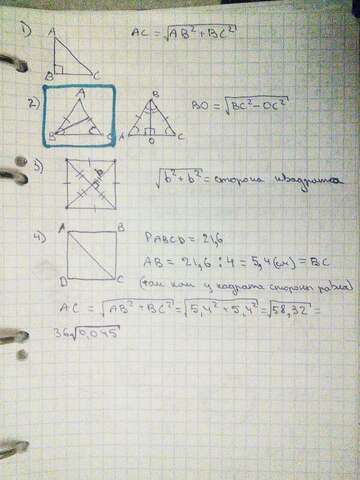 1) A B C AC = √AB² + BC²
2) A B C B A O C BO = √BC² − OC²
3) b b √b² + b² = сторона квадрата
4) A B D C PABCD = 21,6
AB = 21,6 : 4 = 5,4 (см) = BC
(так как у квадрата стороны равны)
AC = √AB² + BC² = √5,4² + 5,4² = √58,32 =
36√0,045